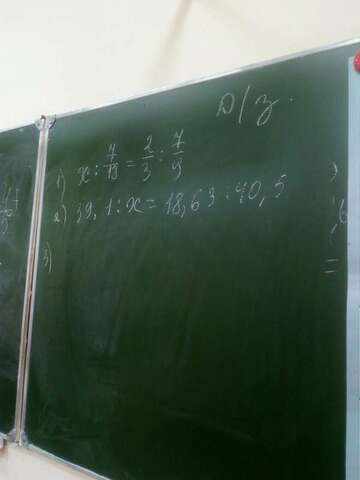 Д/з.
1) x : 7/13 = 2/3 : 7/9
2) 39,1 : x = 18,63 : 40,5
3)